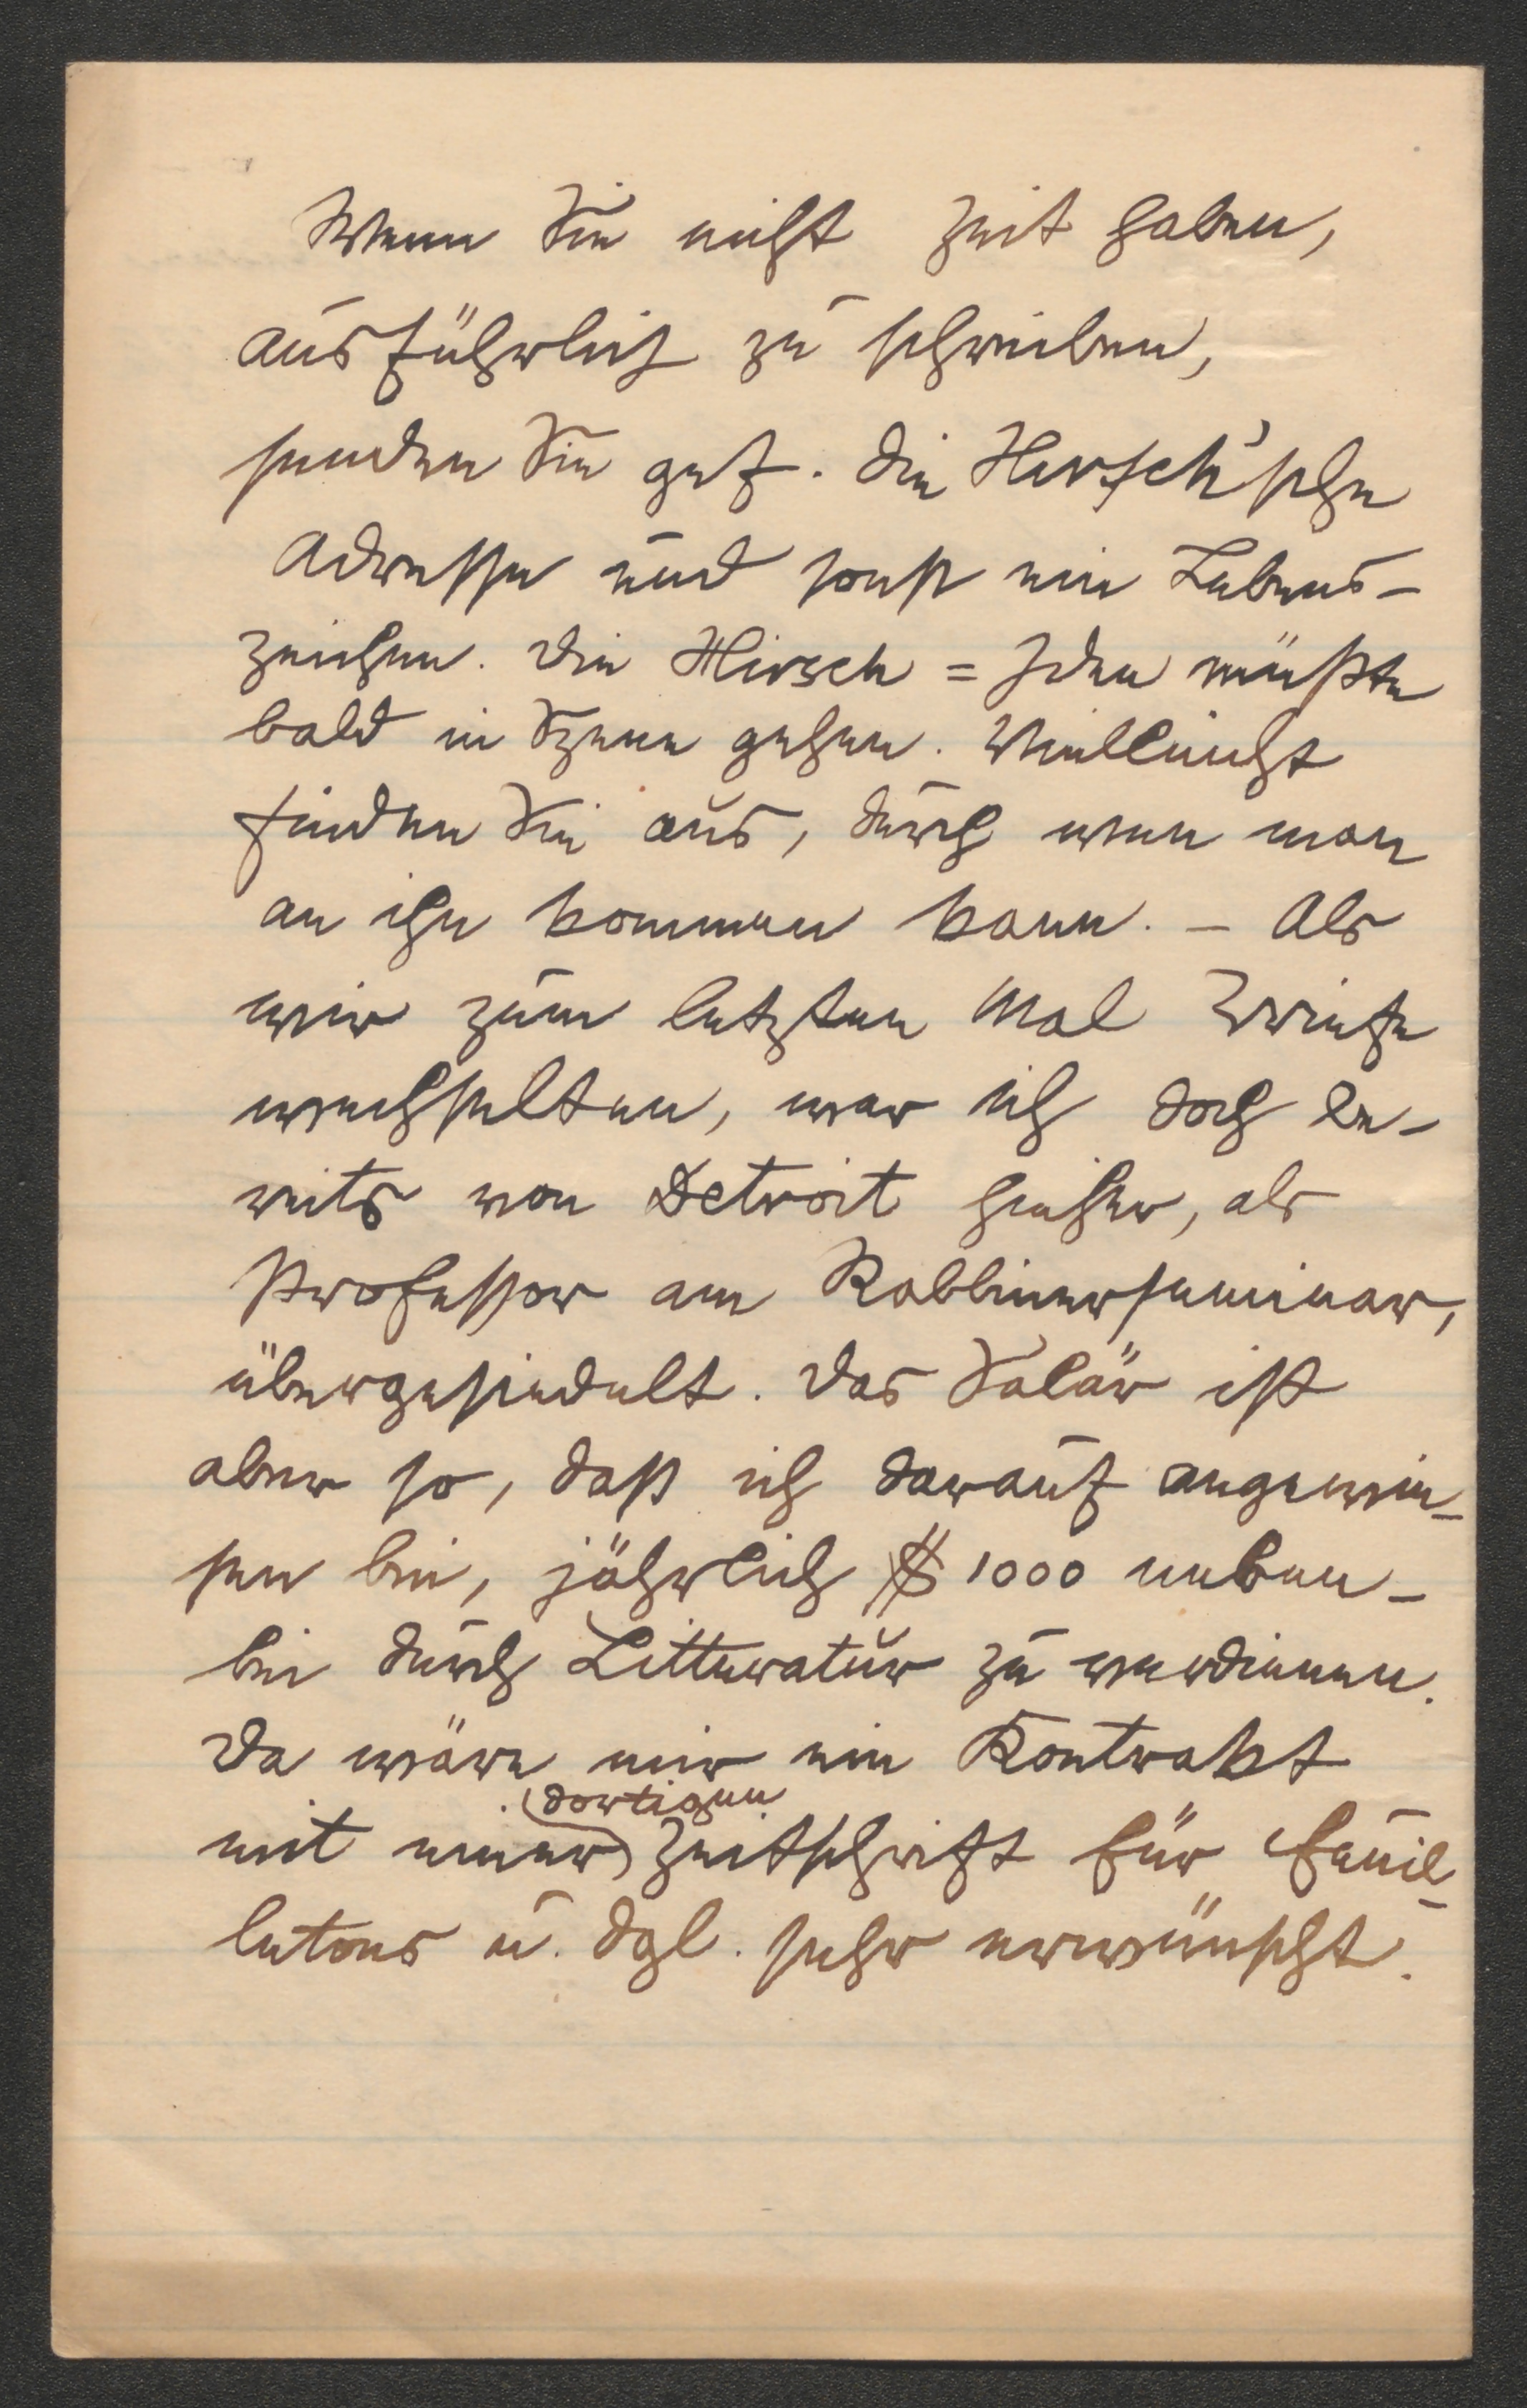 Wenn Sie nicht Zeit haben,
ausführlich zu schreiben,
senden Sie gef. die Hirsch'sche
Adresse und sonst ein Lebens-
zeichen. Die Hirsch = Idee müßte
bald in Szene gehen. Vielleicht
finden Sie aus, durch wen man
an ihn kommen kann. – Als
wir zum letzten Mal Briefe
wechselten, war ich doch be-
reits von Detroit hieher, als
Professor am Rabbinerseminar,
übergesiedelt. Das Salär ist
aber so, daß ich darauf angewie-
sen bin, jährlich $ 1000 neben-
bei durch Litteratur zu verdienen.
Da wäre mir ein Kontrakt
dortigen
mit einer Zeitschrift für Feuil-
letons u. dgl. sehr erwünscht.